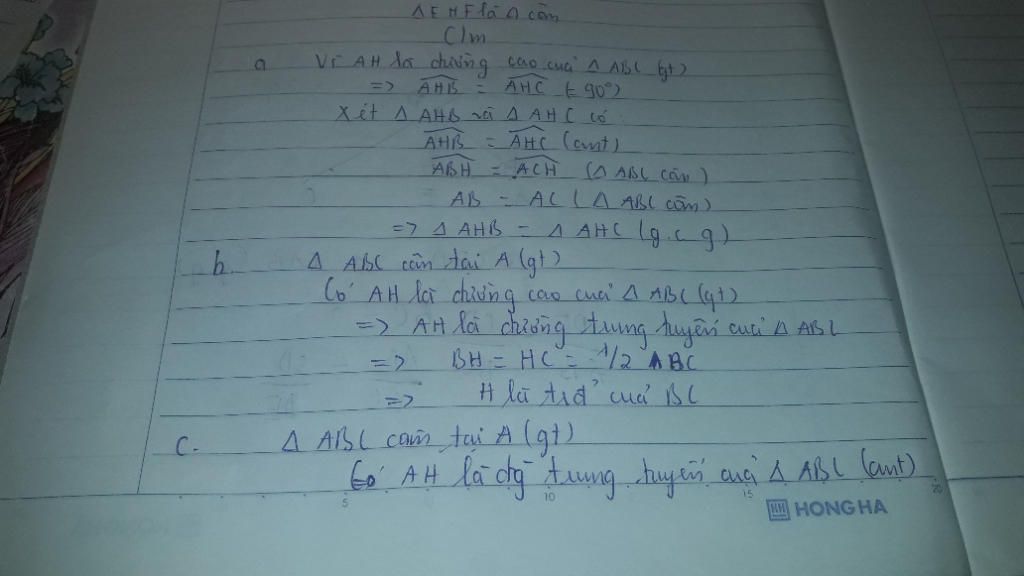 Δ EHF là Δ cân
C/m
a Vì AH là đường cao của Δ ABC (gt)
=> AHB = AHC (= 90°)
Xét Δ AHB và Δ AHC có
AHB = AHC (cmt)
ABH = ACH (Δ ABC cân)
AB = AC (Δ ABC cân)
=> Δ AHB = Δ AHC (g.c.g)
b. Δ ABC cân tại A (gt)
Có AH là đường cao của Δ ABC (gt)
=> AH là đường trung tuyến của Δ ABC
=> BH = HC = 1/2 BC
=> H là trđ của BC
c. Δ ABC cân tại A (gt)
Có AH là đg trung tuyến của Δ ABC (cmt)
5 10 15 20
HONG HA